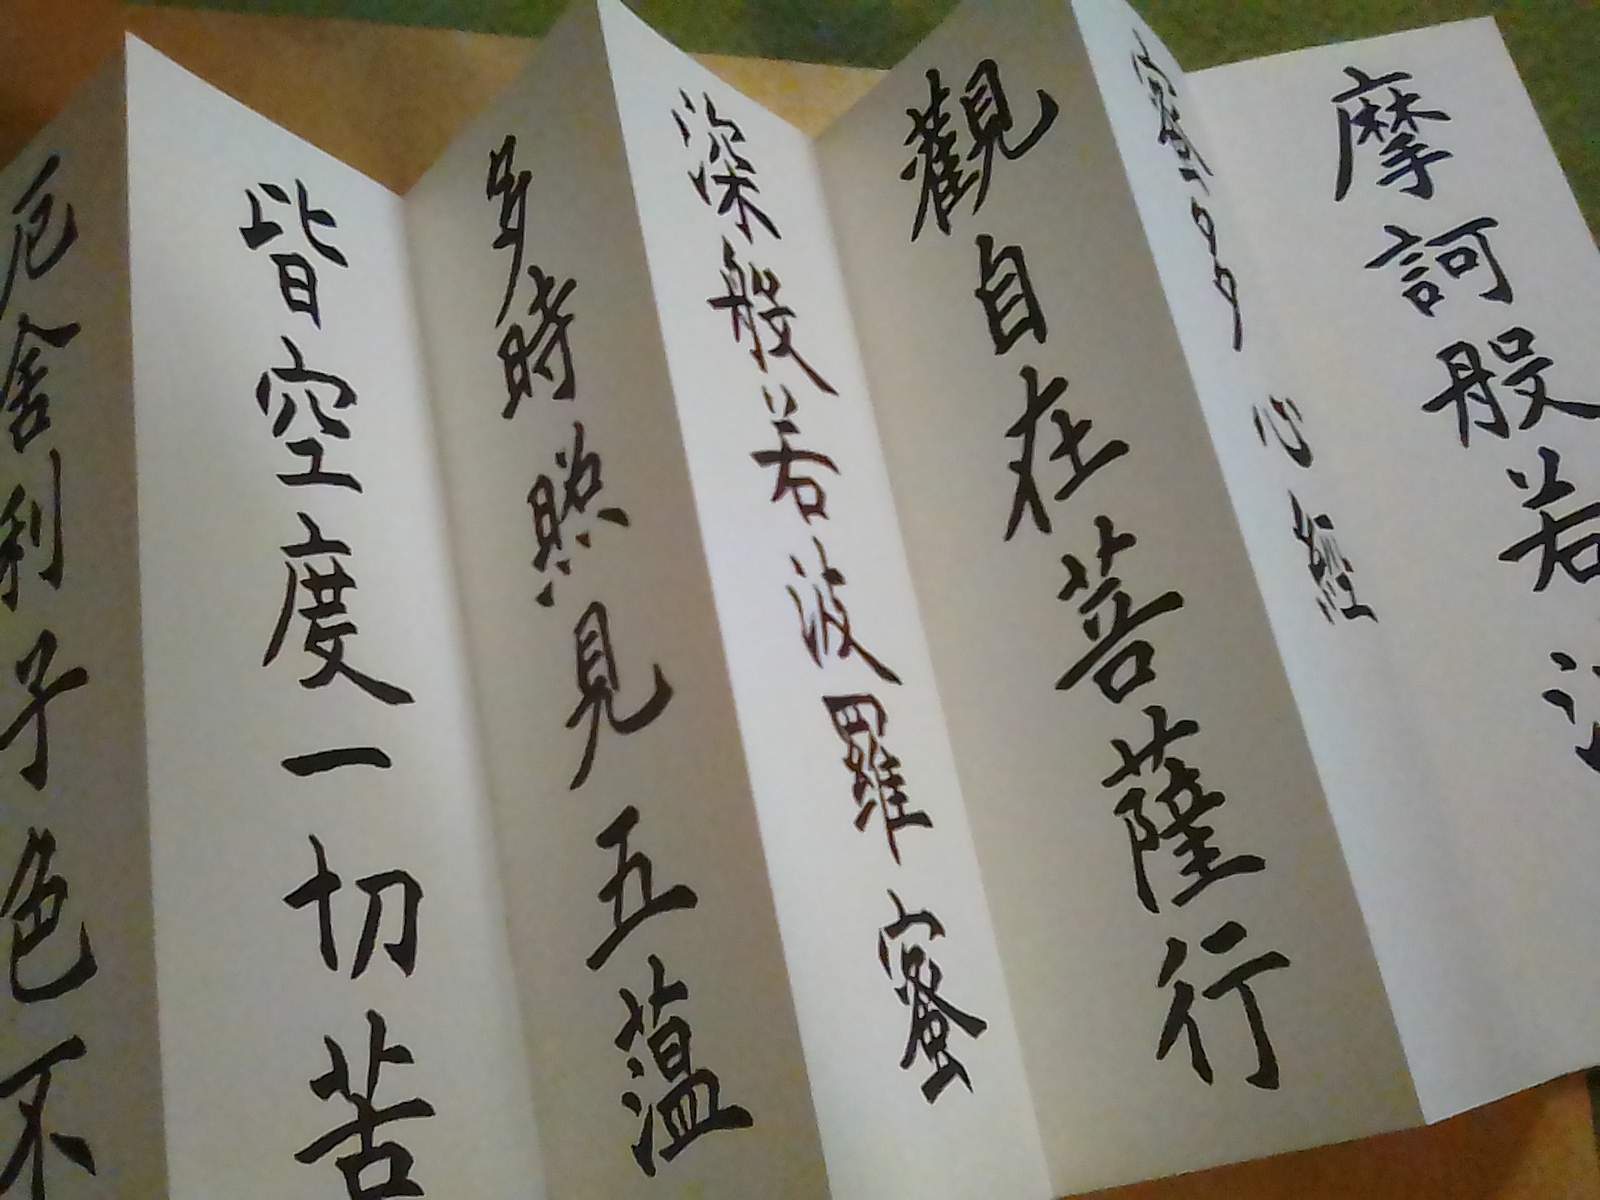 摩訶般若
蜜多心經
觀自在菩薩行
深般若波羅蜜
多時照見五蕰
皆空度一切苦
厄舍利子色不